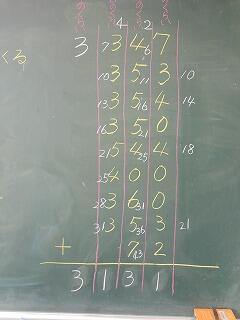 4 2
くる
3 7 3 4 6 7
10 3 5 11 3 10
13 3 5 16 4 14
16 3 5 21 0
21 5 4 25 4 18
25 4 0 0
28 3 6 31 0
31 3 5 36 3 21
+ 7 43 2
3 1 3 1